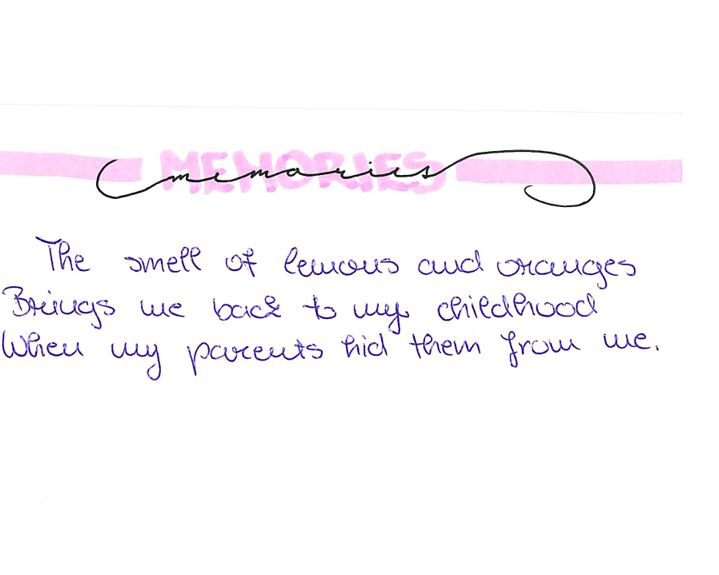 MEMORIES
memories
The smell of lemons and oranges
Brings me back to my childhood
When my parents hid them from me.